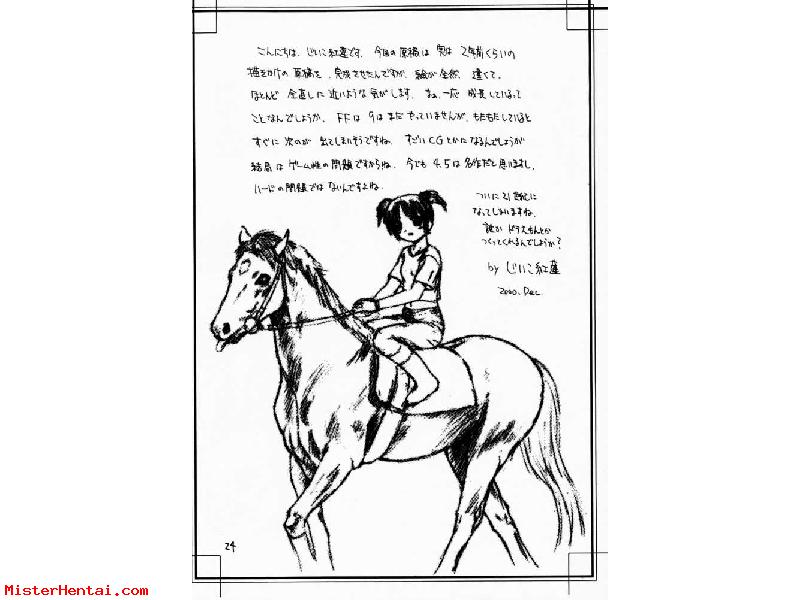 こんにちは、じいこ紅蓮です。今回の原稿は実は2年前くらいの
描きかけの原稿を、完成させたんですが、絵が全然違くて、
ほとんど全直しに近いような気がします。まぁ、一応成長しているって
ことなんでしょうか。FFは9はまだやっていませんが、もたもたしていると
すぐに次のが出てしまいそうですね。すごいCGとかになるんでしょうが
結局はゲーム性の問題ですからね。今でも4.5は名作だと思いますし、
ハードの問題ではないんですよね。
ついに21世紀に
なってしまいますね。
誰かドラえもんとか
つくってくれるんでしょうか?
by じいこ紅蓮
2000.Dec
24
MisterHentai.com